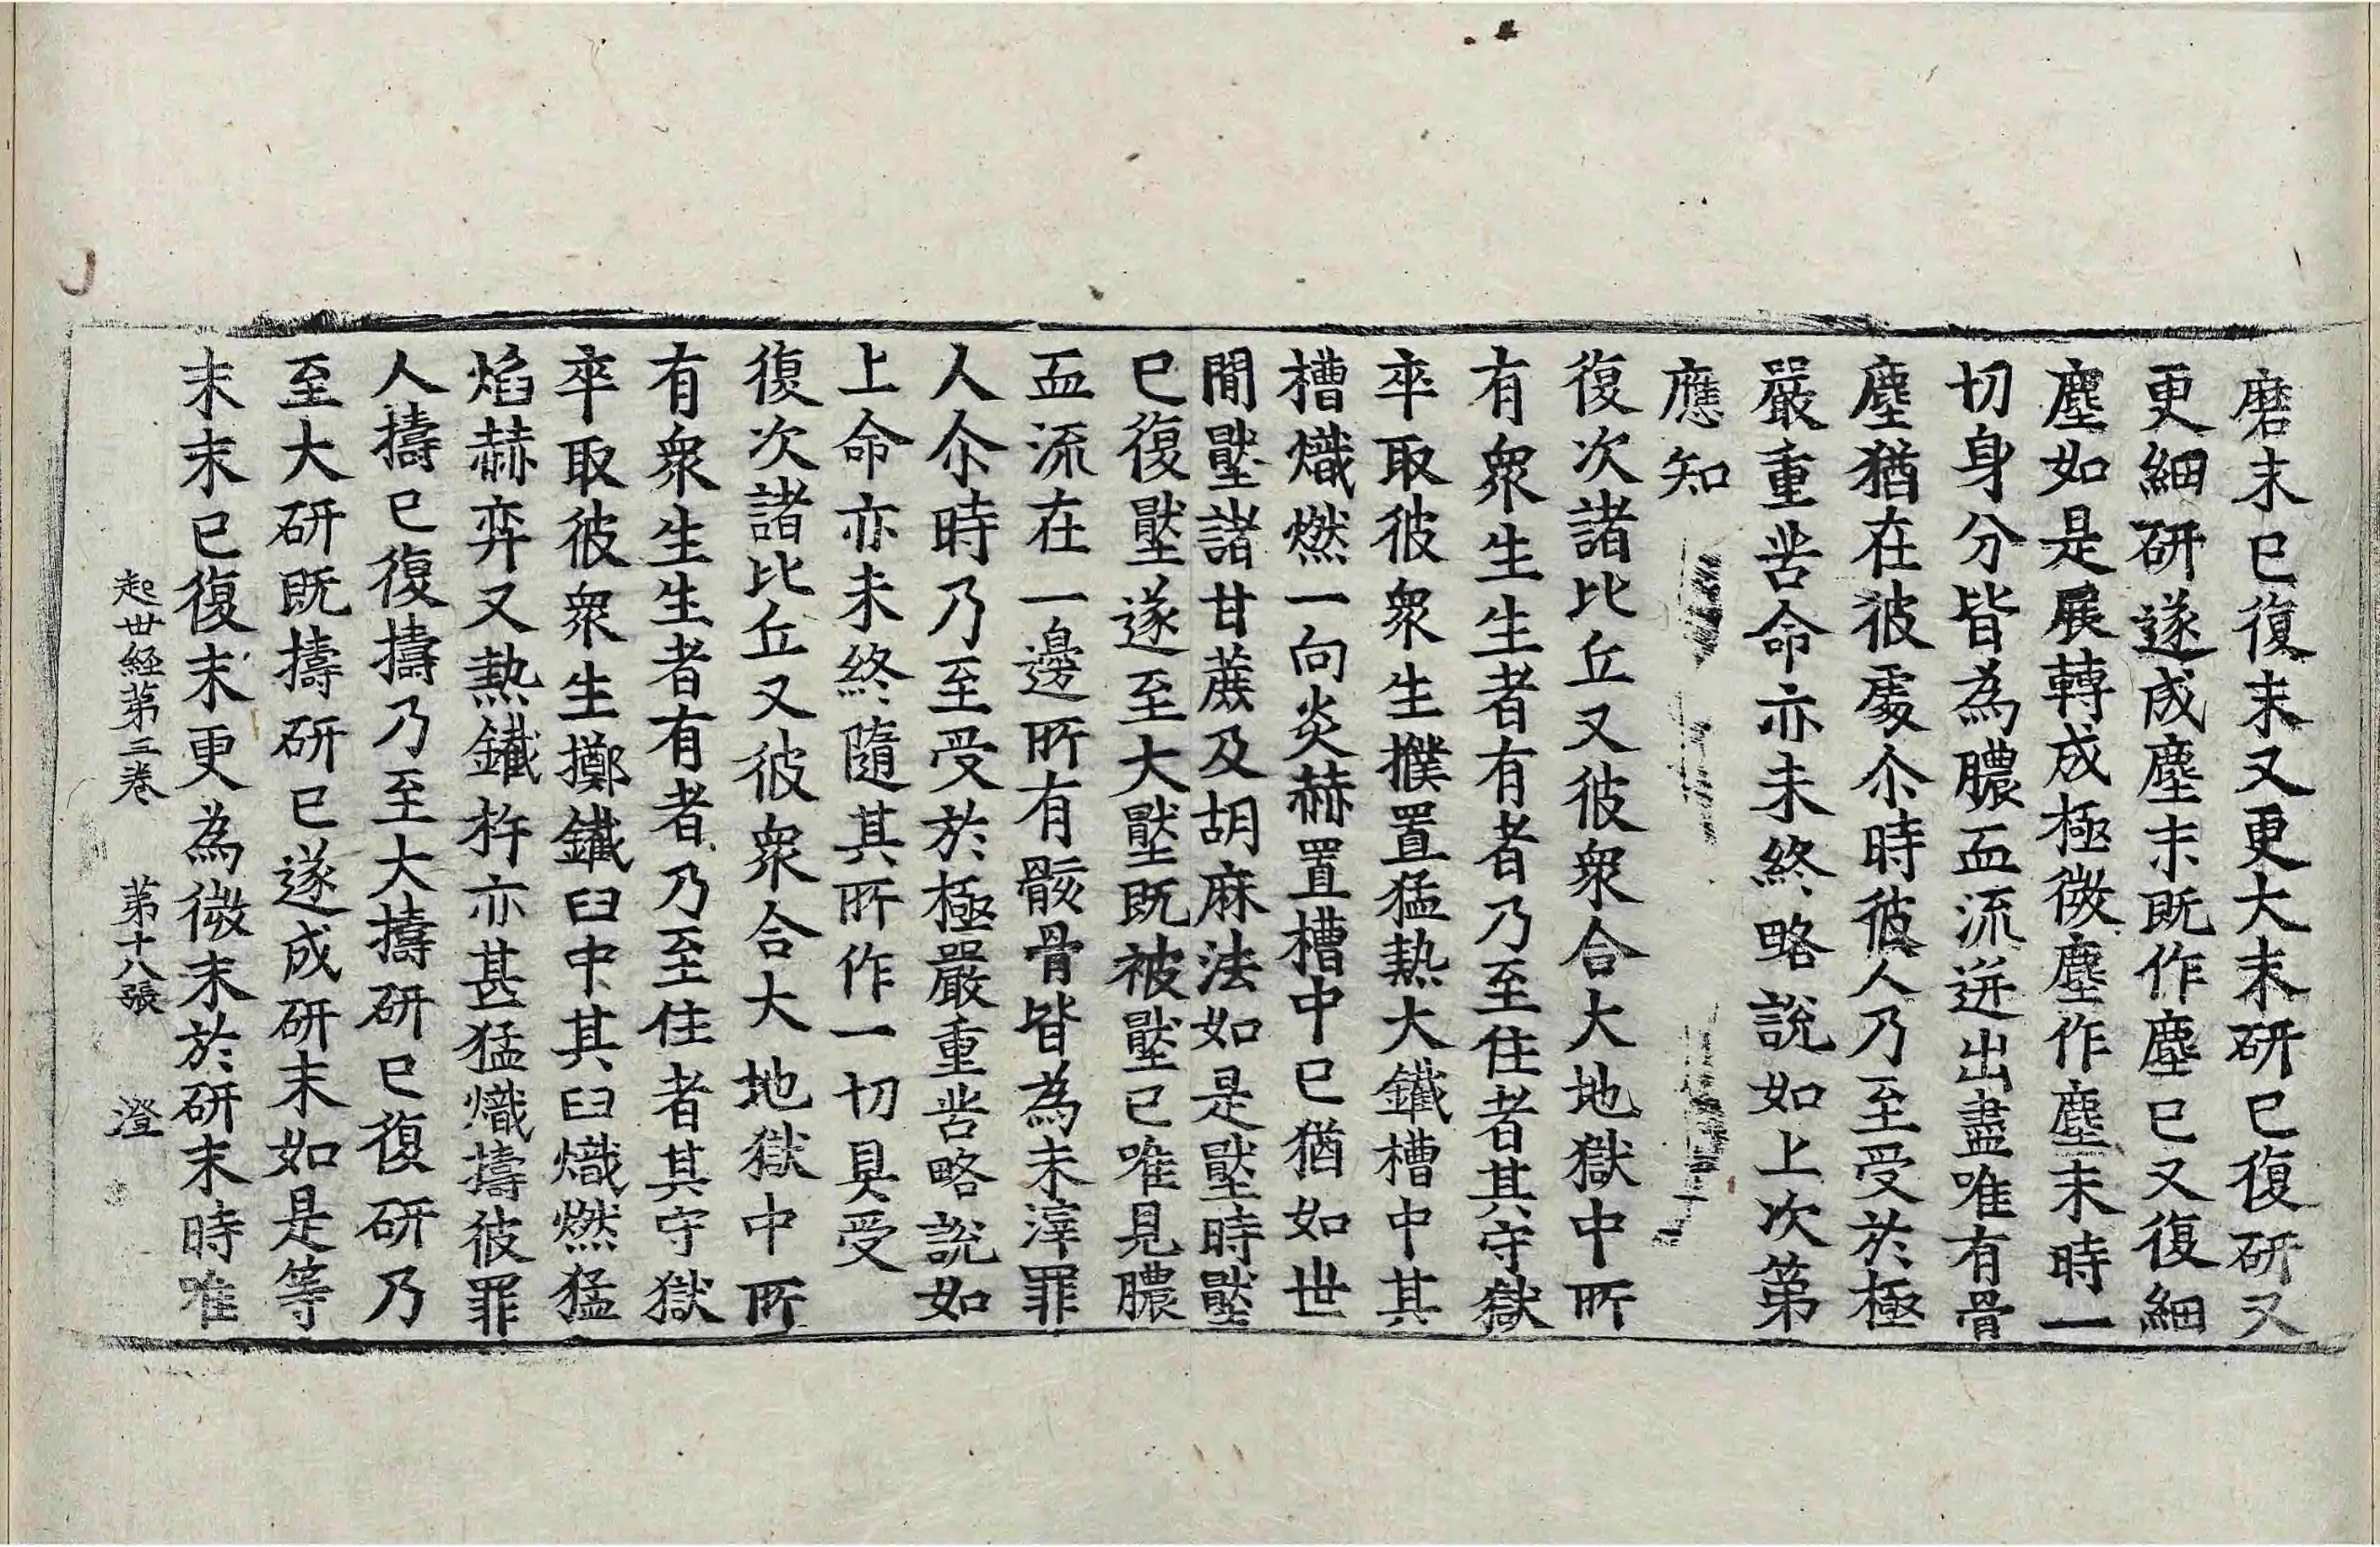 磨末已復末又更大末研已復研又
更細研遂成塵末既作塵已又復細
塵如是展轉成極微塵作塵末時一
切身分皆為膿血流迸出盡唯有骨
塵猶在彼處尒時彼人乃至受於極
嚴重苦命亦未終略說如上次第
應知
復次諸比丘又彼衆合大地獄中所
有衆生生者有者乃至住者其守獄
卒取彼衆生撲置猛熱大鐵槽中其
槽熾燃一向炎赫置槽中已猶如世
間壓諸甘蔗及胡麻法如是壓時壓
已復壓遂至大壓既被壓已唯見膿
血流在一邊所有骸骨皆為末滓罪
人尒時乃至受於極嚴重苦略說如
上命亦未終隨其所作一切具受
復次諸比丘又彼衆合大地獄中所
有衆生生者有者乃至住者其守獄
卒取彼衆生擲鐵臼中其臼熾燃猛
焰赫弈又熱鐵杵亦甚猛熾擣彼罪
人擣已復擣乃至大擣研已復研乃
至大研既擣研已遂成研末如是等
末末已復末更為微末於研末時唯
起世經第三卷 第十八張 澄